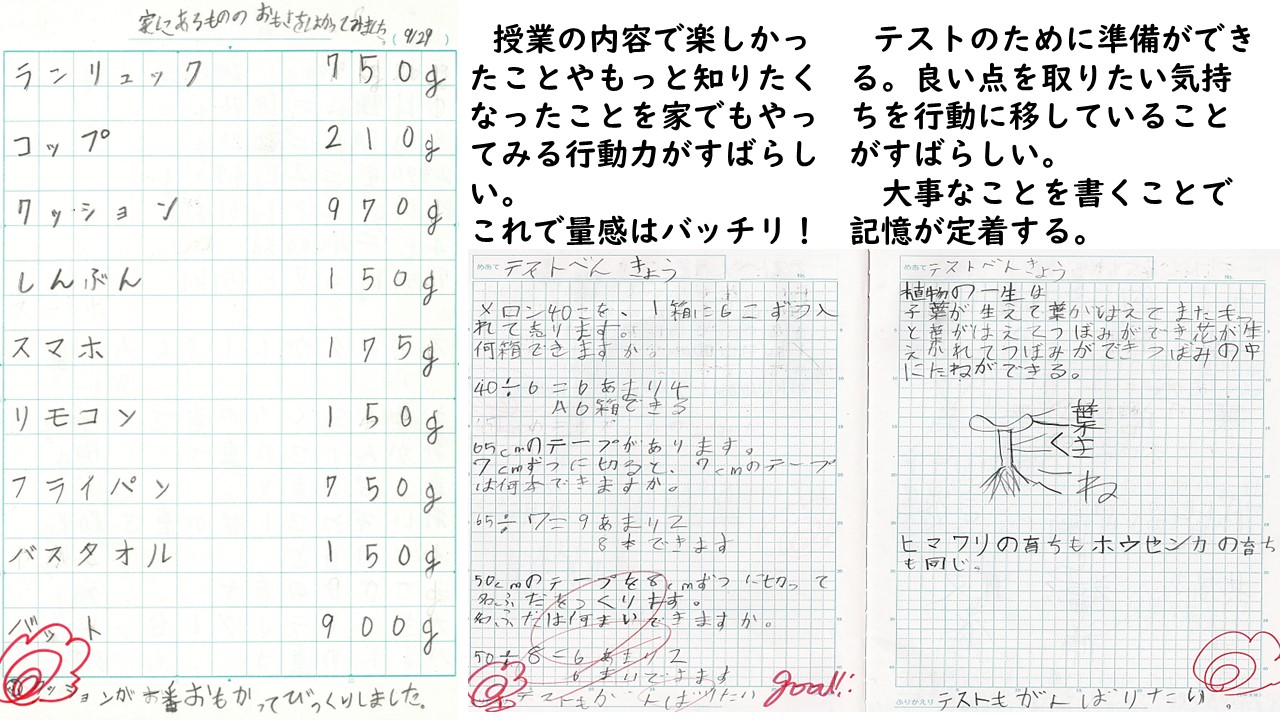 家にあるものの おもさをはかってみました
(9/29)
ランリュック 750g
コップ 210g
クッション 970g
しんぶん 150g
スマホ 175g
リモコン 150g
フライパン 750g
バスタオル 150g
バット 900g
クッションが一番おもかってびっくりしました。
授業の内容で楽しかっ
たことやもっと知りたく
なったことを家でもやっ
てみる行動力がすばらし
い。
これで量感はバッチリ！
テストのために準備ができ
る。良い点を取りたい気持
ちを行動に移していること
がすばらしい。
大事なことを書くことで
記憶が定着する。
めあて テストべんきょう
No.
メロン40こを、1箱に6こずつ入
れて売ります。
何箱できますか。
40÷6=6あまり4
A6箱できる
65cmのテープがあります。
7cmずつに切ると、7cmのテープ
は何本できますか。
65÷7=9あまり2
8本できます
50cmのテープを8cmずつに切って
名ふだをつくります。
名ふだは何まいできますか。
50÷8=6あまり2
6まいできます
テストもがんばりたい
goal!!
めあて テストべんきょう
No.
植物の一生は
子葉が生えて葉がはえてまたもっ
と葉がはえてつぼみができ花が生
えかれてつぼみができつぼみの中
にたねができる。
葉
くき
ね
ヒマワリの育ちもホウセンカの育ち
も同じ。
ふりかえり テストもがんばりたい。